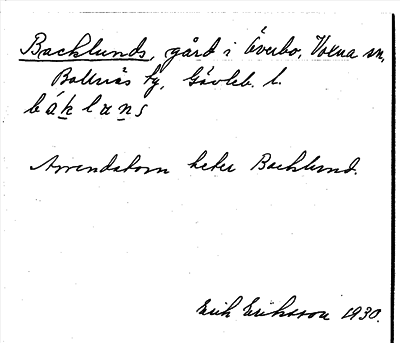 Backlunds, gård i Överbo, Voxna sn,
Bollnäs tg, Gävleb. l.
báklans
Arrendatorn heter Backlund.
Erik Eriksson 1930.